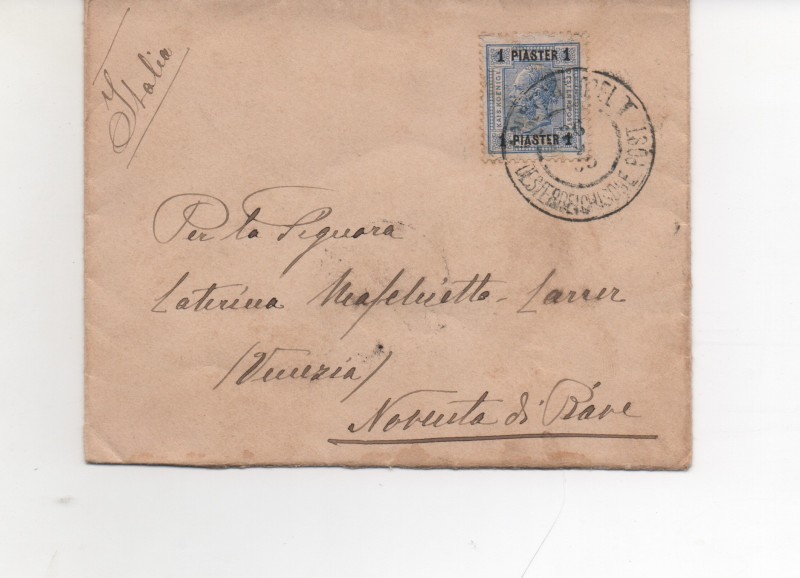 Italia
1 PIASTER 1
1 PIASTER 1
OESTERREICHISCHE POST
Per la Signora
Caterina Maschietto - Carrer
(Venezia)
Noventa di Piave